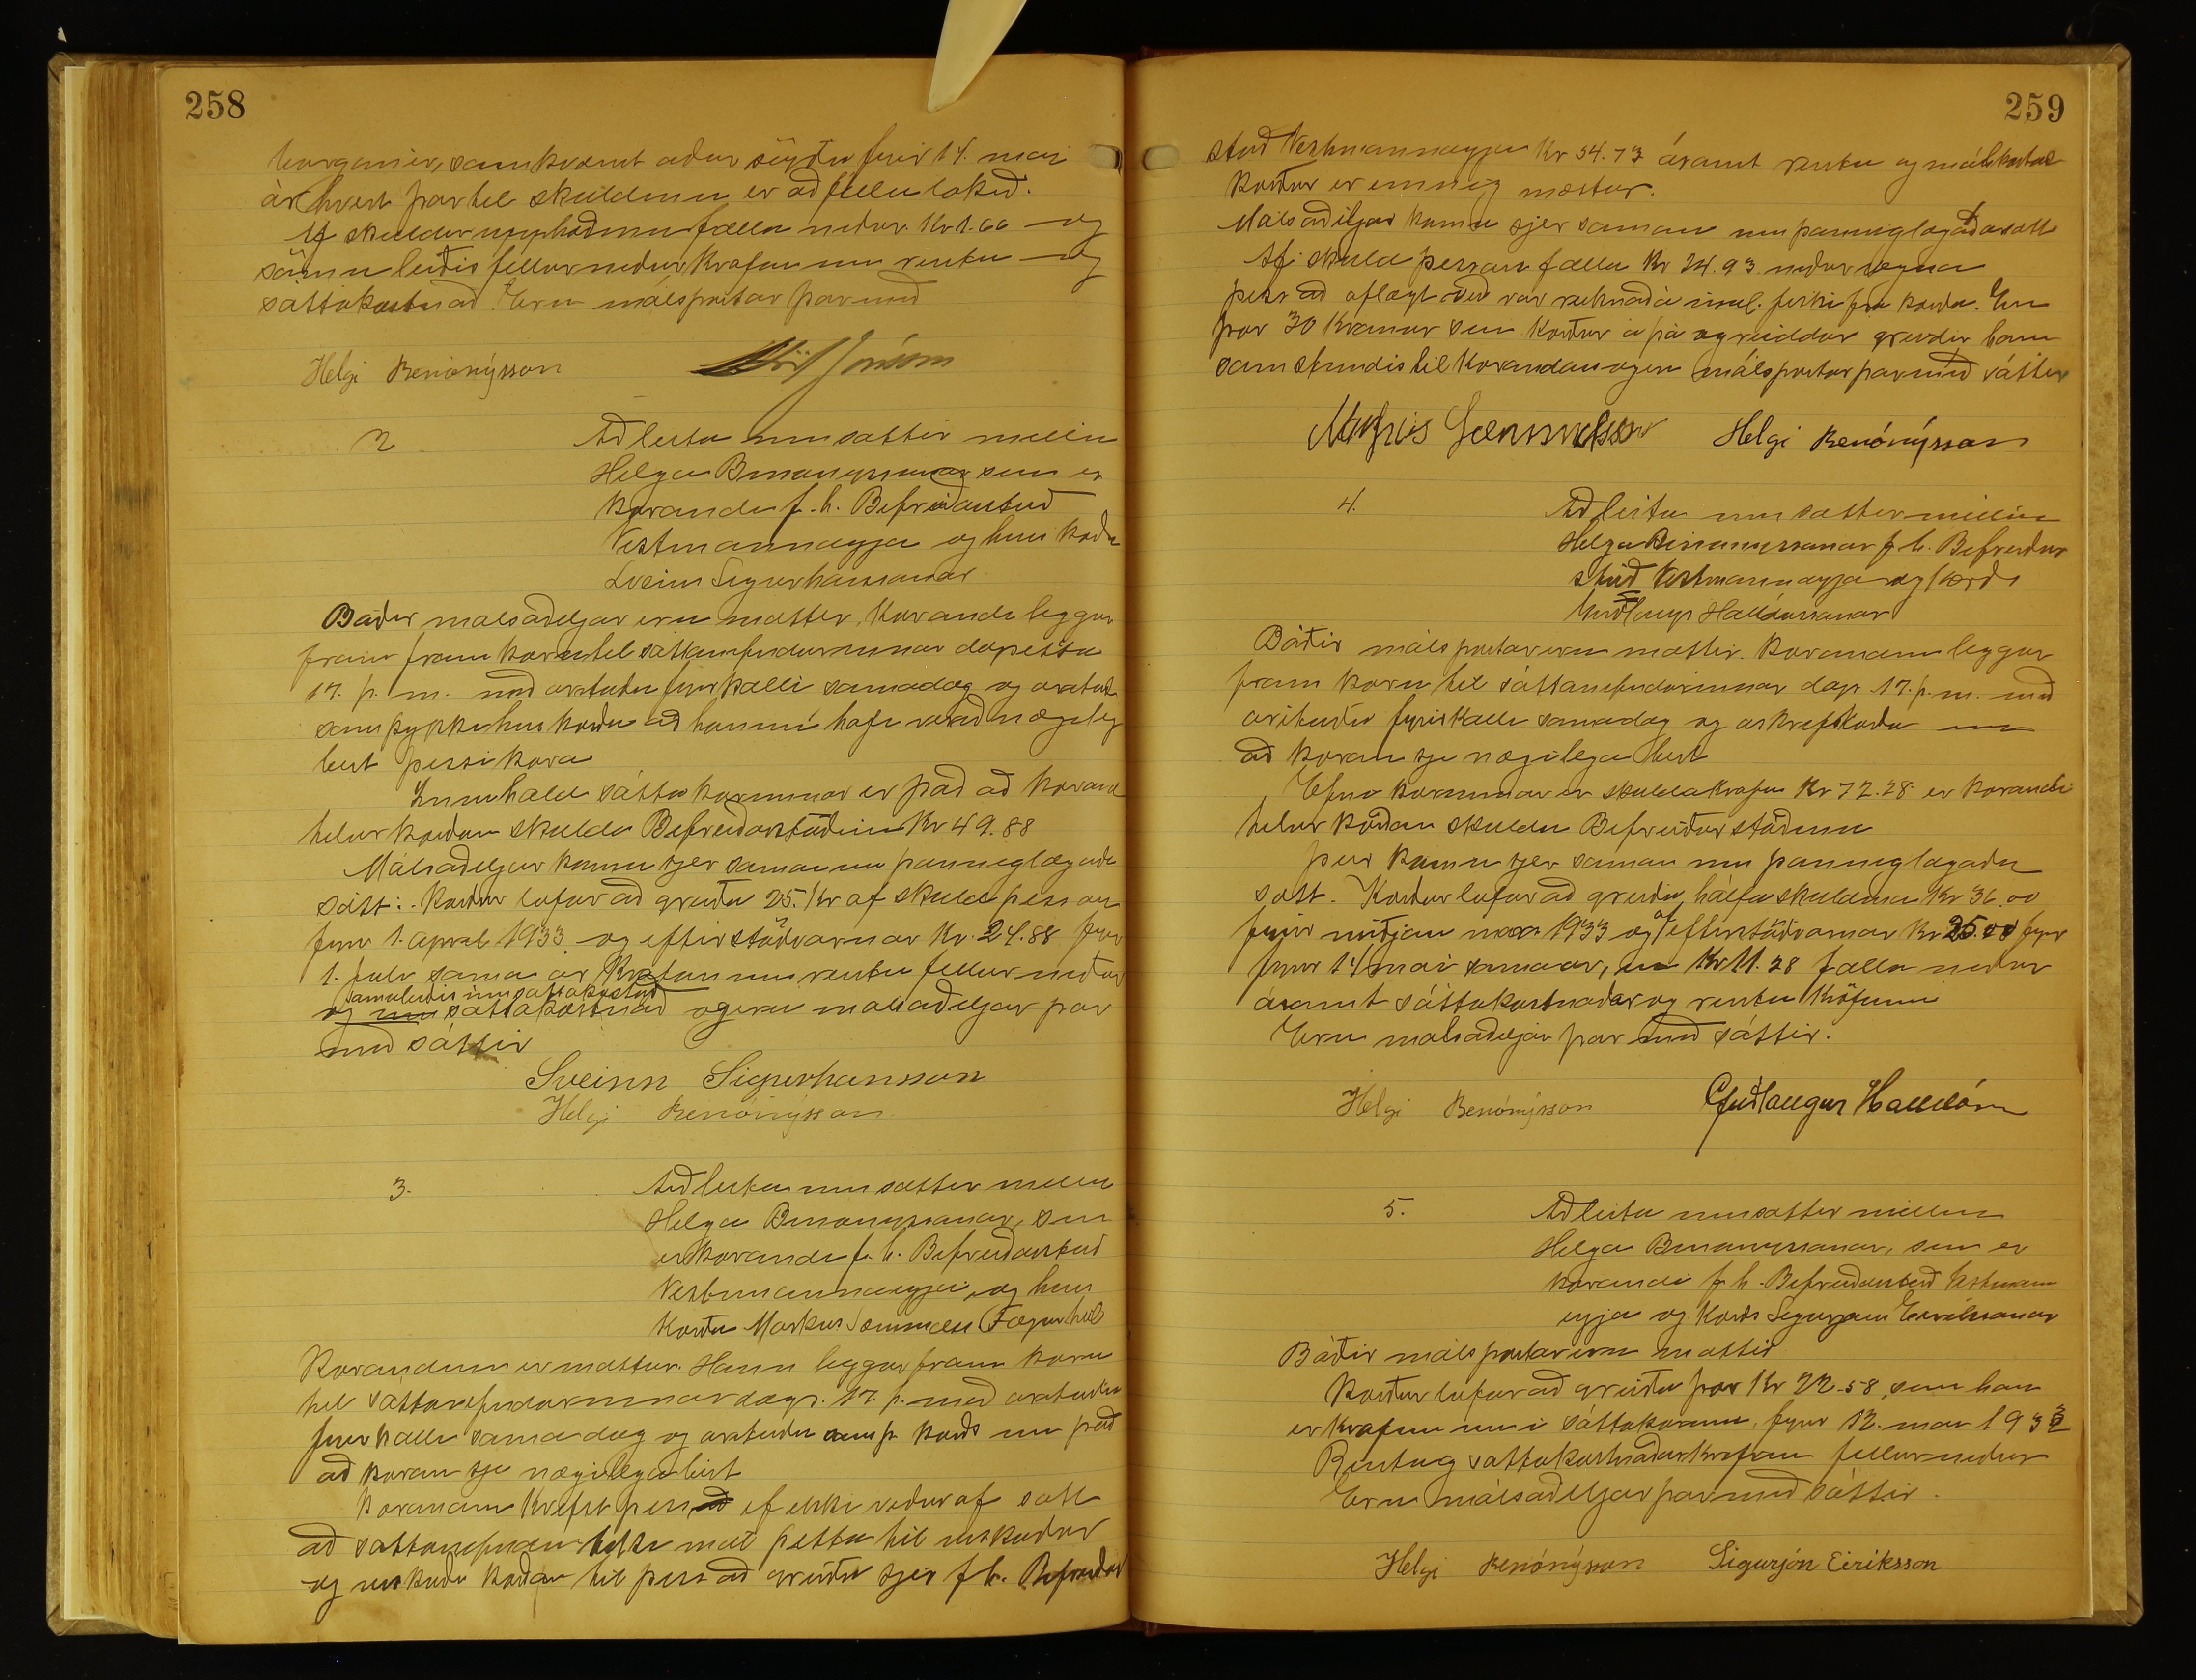 258
borganir, samkvæmt aður sögðu fyrir 14. mai
ár hvert þar til skuldinni er að fullu lokið.
Af skuldarupphæðinni falla niður Kr 1.66 og
sömuleiðis fellur niður krafan um rentu og
sáttakostnað. Eru málspartar þar með
Helgi Benónýsson
2 Að leita um sættir millum
Helga Benonyssonar sem er
kærandi f. h. Bifreiðastöð
Vestmannaeyja og hins kærða
Sveins Sigurhanssonar
Báðir malsaðiljar eru mættir. Kærandi leggur
fram kæru til sáttanefndarinnar dags.
17. þ. m. með arituðu fyrirkalli samadag og
samþykki hins kærða að honum hafi verið nægileg
birt þessi kæra
Innihald sáttakærunnar er það að kærand
telur kærðan skulda Bifreiðarstöðinni Kr 49.88
Málsaðiljar koma sjer saman um þannig lagaða
sátt: Kærður lofar að greiða 25. Kr af skuld þessari
fyrir 1. apral 1933 og eftirstöðvarnar Kr. 24.88 fyrir
1. juli sama ár Krafan um rentu fellur niður
samuleiðis um sáttakostnað
og um sáttakostnað og eru malsaðiljar þar
með sáttir
Sveinn Sigurhansson
Helgi Benónýsson
3. Að leita um sættir millum
Helga Benonyssonar, sem
er kærandi f. h. Bifreiðastöð
Vestmannaeyja og hins
kærða Markus Sæmundss Fagurhól
Kærandinn er mættur. Hann leggur fram kæru
til sáttanefndarinnar dags. 17. þ. með arituðu
fyrirkalli samadag og arituðu samþ. kærðs um það
að kæran sje nægilega birt
Kærandinn krefst þess ef ekki verður af sátt
að sáttanefndin vísi mál þetta til urskurðar
og urskurði kærðan til þess að greiða sjer f. h. Bifreiðar
259
stöð Vestmannaeyja Kr 54.73 ásamt rentu og málskostnað
Kærður er einnig mættur.
Málsaðiljar koma sjer saman um þannig lagaða sátt
Af skuld þessari falla Kr 24.93 niður vegna
þess að oflagt var reiknað á innl. fiski frá kærða. En
þær 30 krónur sem kærður á þá ogreiddar greiðir hann
samstundis til kærandans og eru málspartar þar með sáttir
Markús Sæmundsson Helgi Benónýsson
4. Að leita um sættir millum
Helga Benonyssonar f h. Bifreiðar
stöð Vestmannaeyja og kærðs
Guðlaugs Halldórssonar
Báðir málspartar eru mættir. Kærandinn leggur
fram kæru til sáttanefndarinnar dags 17. þ. m. með
arituðu fyrirkalli samadag og
að kæran sje nægilega birt
Efni kærunnar er skuldakrafa Kr 72.28 er kærandi
telur kærðan skulda Bifreiðarstöðinni
Þeir koma sjer saman um þannig lagaða
sátt. Kærður lofar að greiða hálfa skuldina Kr 36.00
fyrir miðjan mars 1933 og af eftirstöðvarnar Kr 25.00 fyrir
fyrir 14 mai sama ár, en Kr 11.28 falla niður
ásamt sáttakostnaðar og rentu kröfunni
Eru malsaðiljar þar með sáttir.
Helgi Benónýsson Guðlaugur Halldórss
5. Að leita um sættir millum
Helga Benonyssonar, sem er
kærandi f h. Bifreiðastöð Vestmann
eyja og kærðs Sigurjóns Eirikssonar
Báðir málspartar eru mættir
Kærður lofar að greiða þær Kr 22.58, sem han
er krafinn um i sáttakærunni, fyrir 12. mai 1933
Rentu og sáttakostnaðarkrafan fellur niður
Eru málsaðiljar þar með sáttir.
Helgi Benónýsson Sigurjón Eiríksson